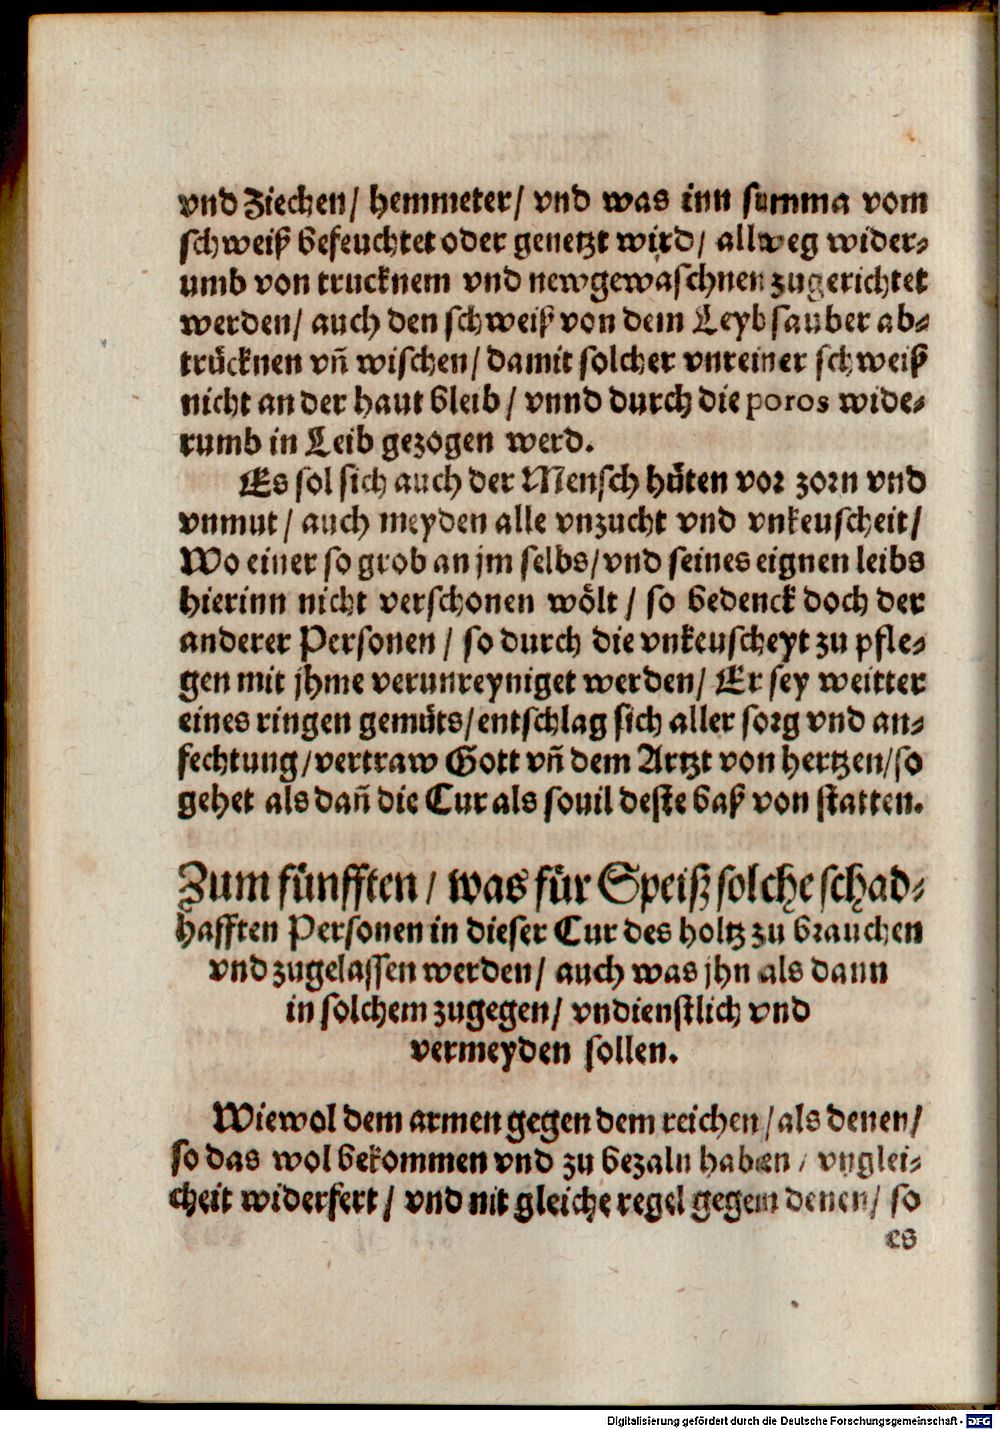 vnd Ziechen/ hemmeter/ vnd was inn summa vom
schweiß befeuchtet oder genetzt wird/ allweg wider⸗
umb von trucknem vnd newgewaschnen zugerichtet
werden/ auch den schweiß von dem Leyb sauber ab⸗
trücknen vñ wischen/ damit solcher vnreiner schweiß
nicht an der haut bleib/ vnnd durch die poros wide⸗
rumb in Leib gezogen werd.
Es sol sich auch der Mensch hüten vor zorn vnd
vnmut/ auch meyden alle vnzucht vnd vnkeuscheit/
Wo einer so grob an jm selbs/ vnd seines eignen leibs
hierinn nicht verschonen wölt/ so bedenck doch der
anderer Personen/ so durch die vnkeuscheyt zu pfle⸗
gen mit jhme verunreyniget werden/ Er sey weitter
eines ringen gemüts/ entschlag sich aller sorg vnd an⸗
fechtung/ vertraw Gott vñ dem Artzt von hertzen/ so
gehet als dañ die Cur als souil deste baß von statten.
Zum fünfften/ was für Speiß solche schad⸗
hafften Personen in dieser Cur des holtz zu brauchen
vnd zugelassen werden/ auch was jhn als dann
in solchem zugegen/ vndienstlich vnd
vermeyden sollen.
Wiewol dem armen gegen dem reichen/ als denen/
so das wol bekommen vnd zu bezaln haben/ vnglei⸗
cheit widerfert/ vnd nit gleiche regel gegem denen/ so
es
Digitalisierung gefördert durch die Deutsche Forschungsgemeinschaft - DFG